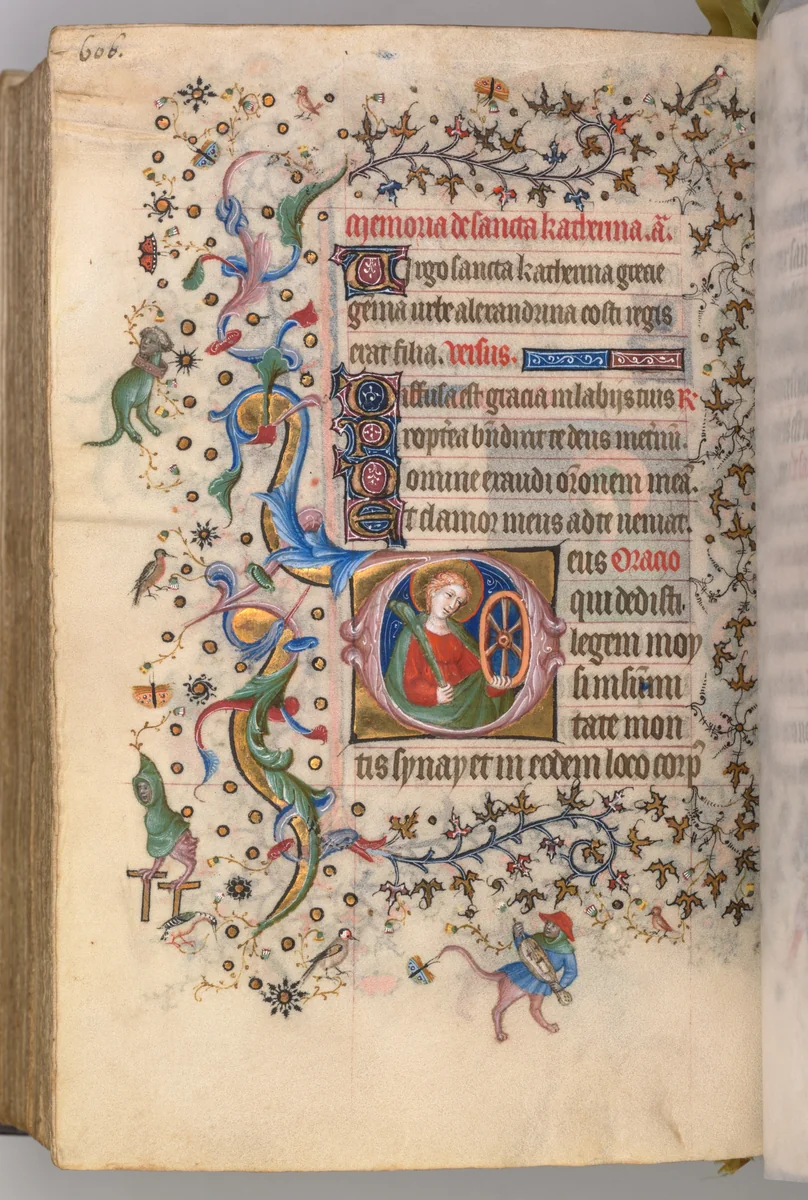 606.
Memoria de sancta katherina. añ.
Virgo sancta katherina grecie
gemma urbe alexandrina costi regis
erat filia. Versus.
Diffusa est gracia in labijs tuis R
Propterea bñdixit te deus in eternũ.
Domine exaudi orõnem meã.
Et clamor meus ad te veniat.
Deus Oracio
qui dedisti
legem moy
si in sũmi
tate mon
tis synay et in eodem loco corp